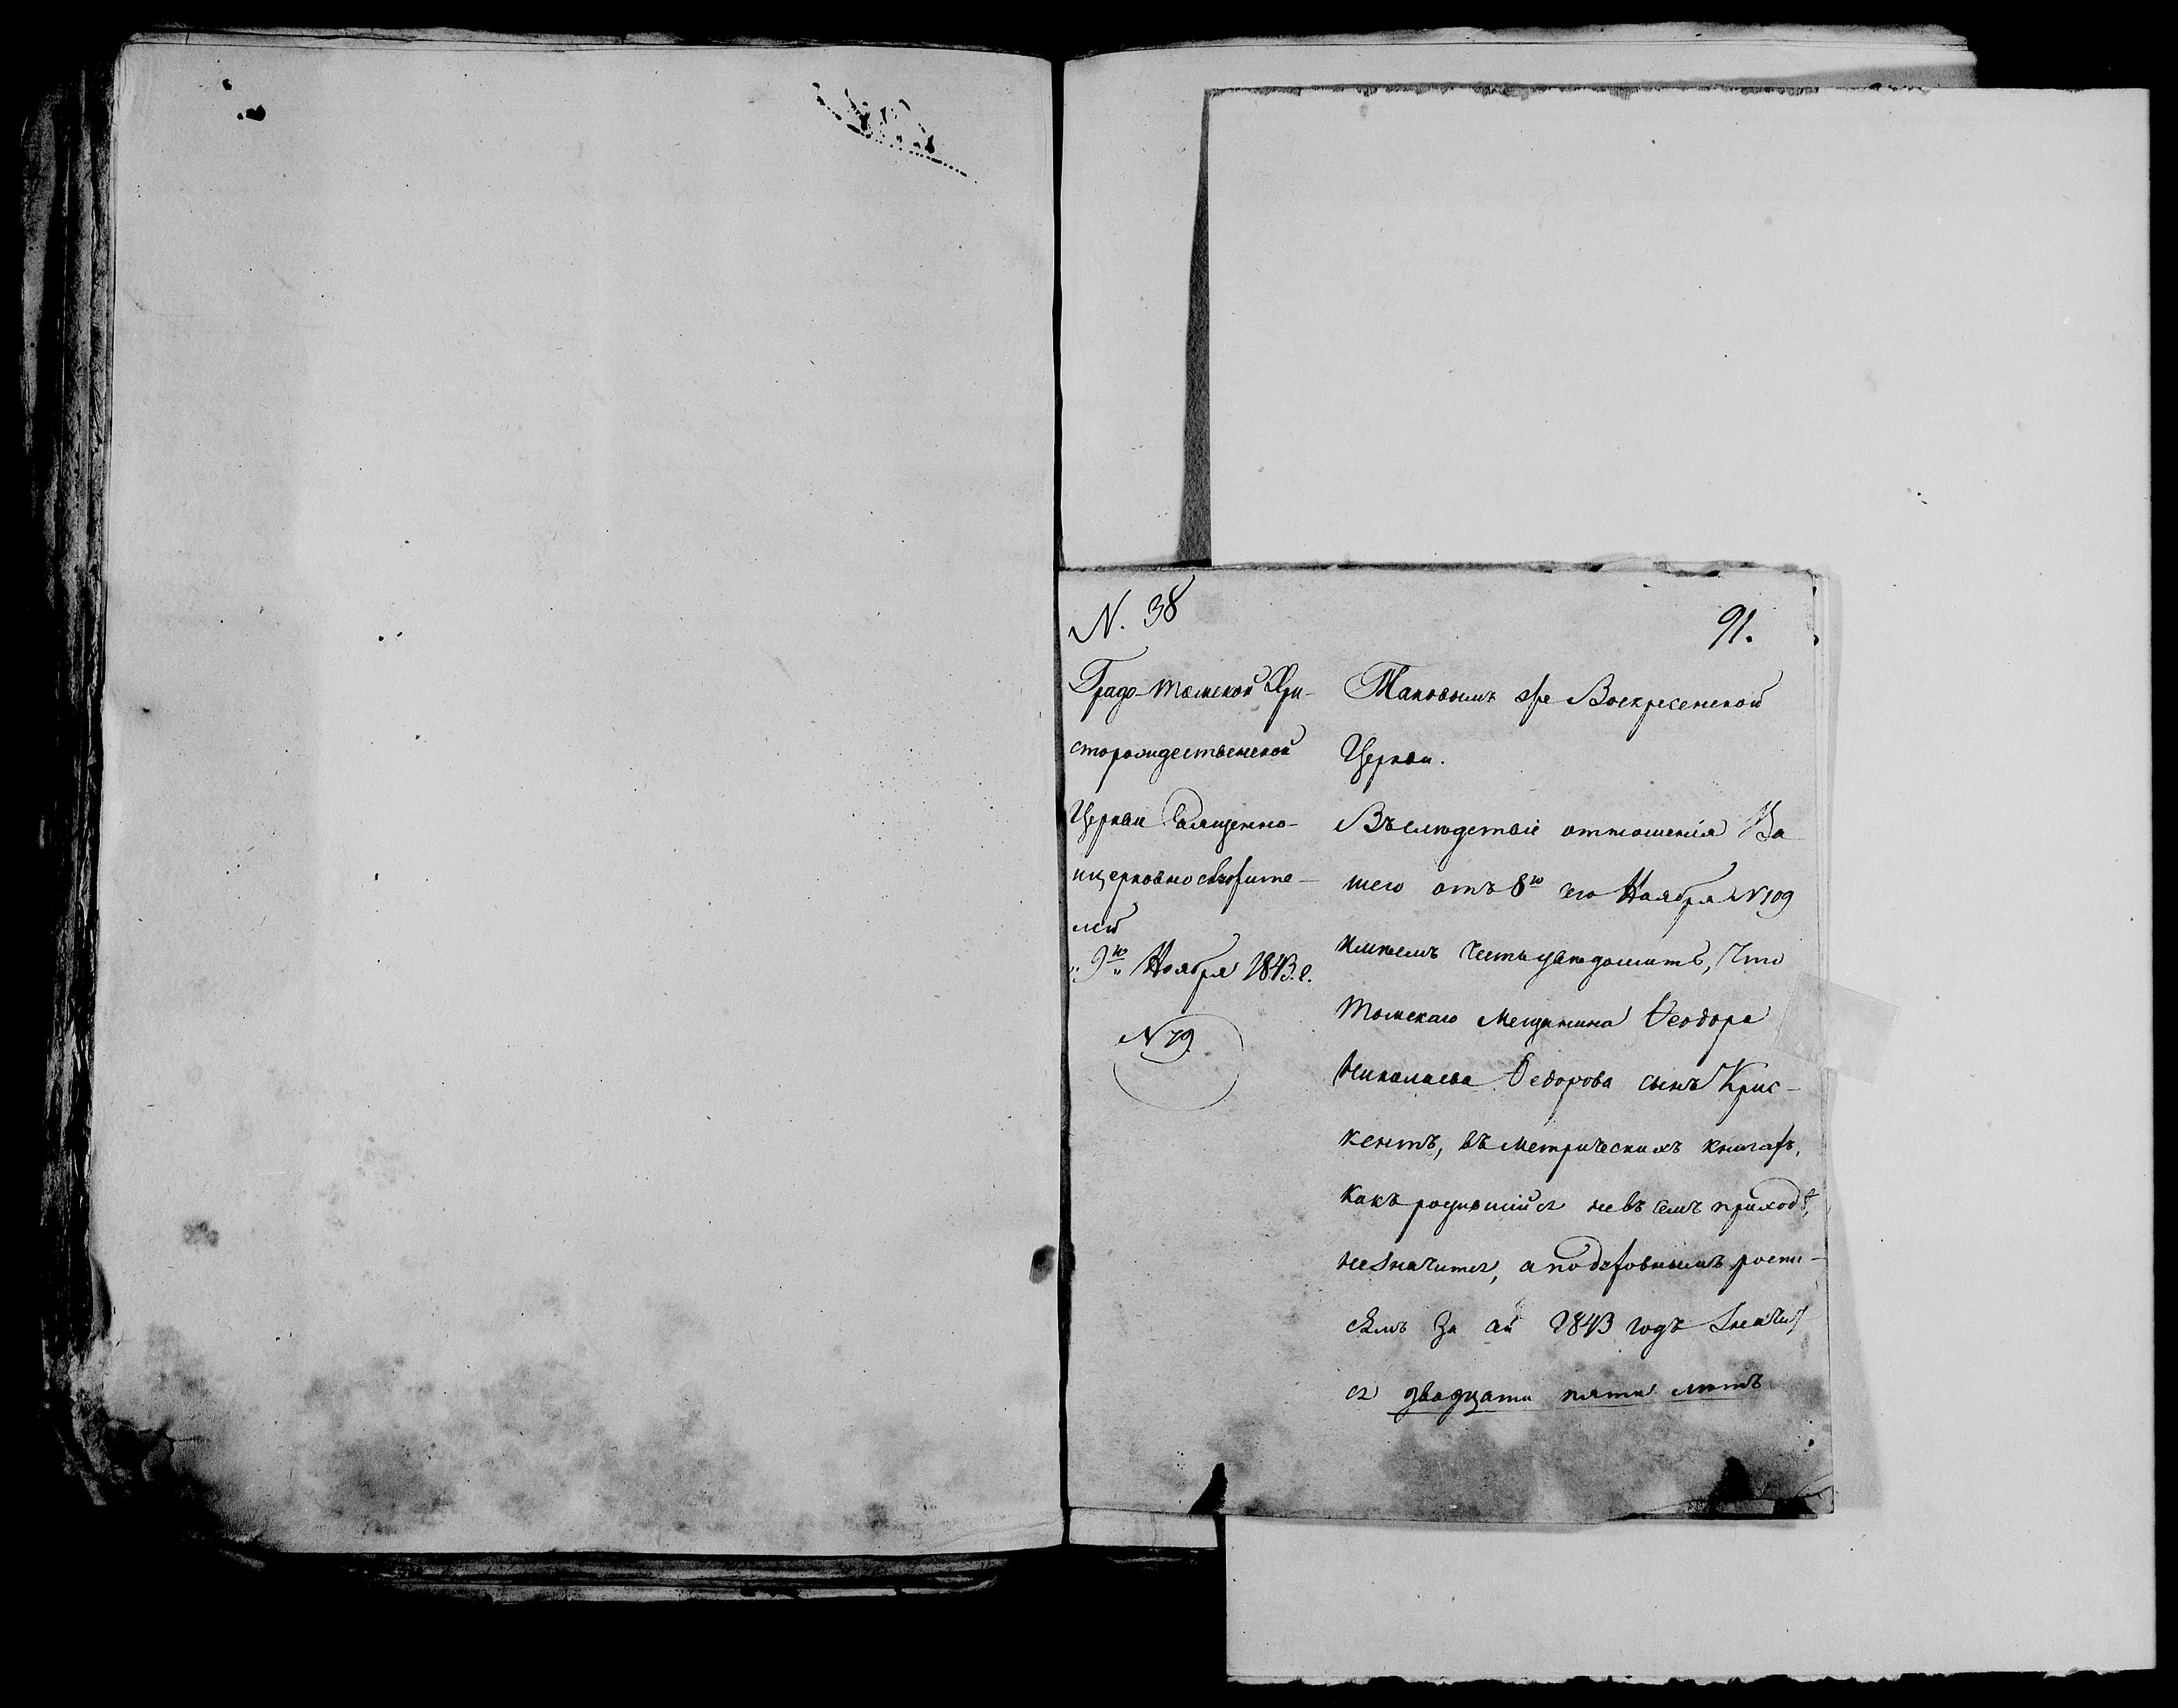 N. 38
91.
Градо-Томской Хри-
сторождественской
Церкви Священно-
ицерковнослужите-
лей
„9го„ Ноября 1843. г.
N 79.
Таковымъ же Воскресенской
Церкви.
Въслѣдствіе отношенія Ва
шего отъ 8го его Ноября N 109
имѣемъ честь увѣдомить, Что
Томскаго Мещанина Ѳеодора
Николаева Ѳедорова сынъ Крис-
кентъ, въ Метрическихъ книгахъ,
Какъ родившійся невъ семъ приходѣ,
незначится, а по духовнымъ роспи-
сямъ За сей 1843 годъ Значит
ся двадцати пяти лѣтъ